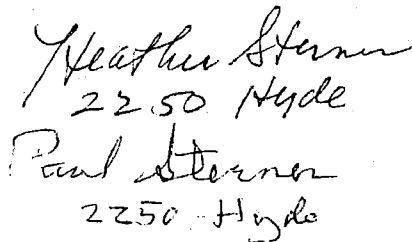 Heather Sterner
2250 Hyde
Paul Sterner
2250 Hyde